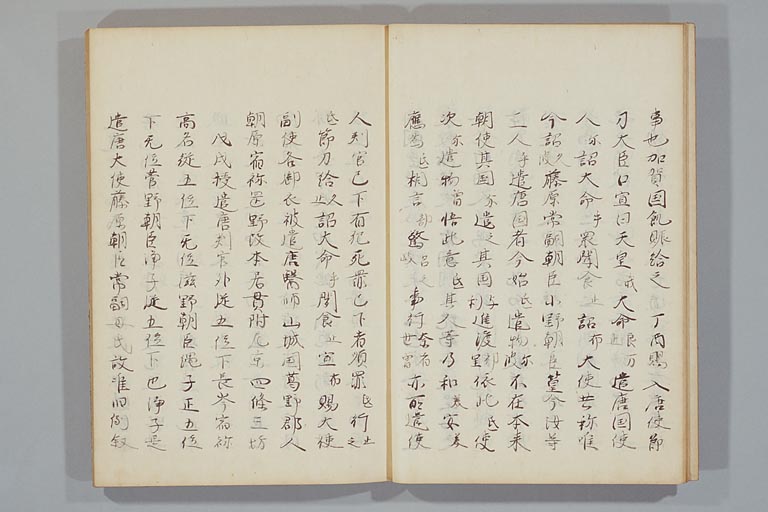 事也加賀国飢賑給之 丁酉賜入唐使節
刀大臣口宣曰天皇我大命良万遣唐国使
人尓詔大命乎衆聞食止詔布大使共祢唯
今詔久藤原常嗣朝臣小野朝臣篁今汝等
二人乎遣唐国者今始氐遣物波尓不在本来
朝使其国尓遣之其国与利進渡祁里依此氐使
次尓遣物曽悟此意氐其人等乃和美安美
應為氐相言部驚呂之岐事行奈世曽亦所遣使
人判官已下有犯死罪已下者順罪氐行止之
氐節刀給久止詔大命乎聞食止宣布賜大使
副使各御衣被遣唐医師山城国葛野郡人
朝原宿祢岡野改本居貫附左京四條三坊
戊戌授遣唐判官外従五位下長岑宿祢
高名従五位下无位滋野朝臣縄子正五位
下无位菅野朝臣浄子従五位下巴浄子是
遣唐大使藤原朝臣常嗣母氏故准旧例叙